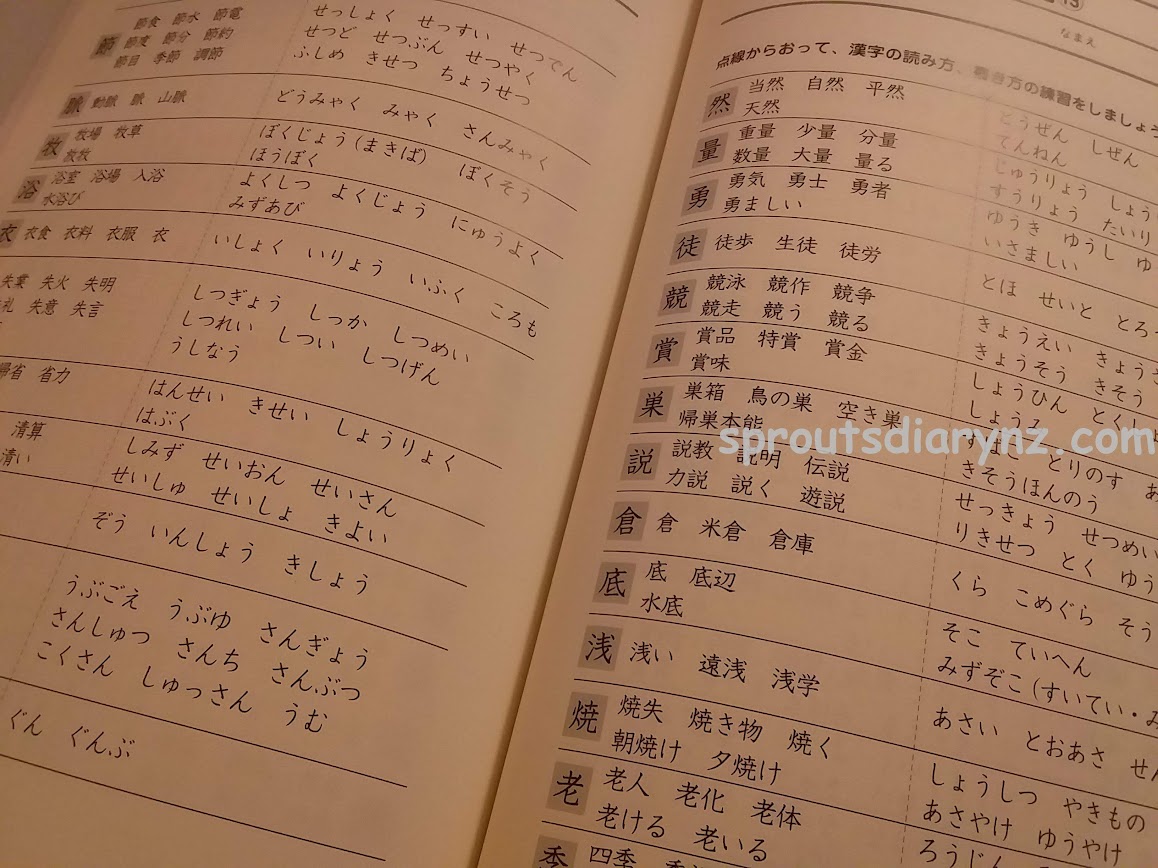 節 節食 節水 節電 せっしょく せっすい せつでん
節度 節分 節約 せつど せつぶん せつやく
節目 季節 調節 ふしめ きせつ ちょうせつ
脈 動脈 脈 山脈 どうみゃく みゃく さんみゃく
牧 牧場 牧草 ぼくじょう(まきば) ぼくそう
放牧 ほうぼく
浴 浴室 浴場 入浴 よくしつ よくじょう にゅうよく
水浴び みずあび
衣 衣食 衣料 衣服 衣 いしょく いりょう いふく ころも
失業 失火 失明 しつぎょう しっか しつめい
礼 失意 失言 しつれい しつい しつげん
うしなう
帰省 省力 はんせい きせい しょうりょく
はぶく
清算 しみず せいおん せいさん
清い せいしゅ せいしょ きよい
ぞう いんしょう きしょう
うぶごえ うぶゆ さんぎょう
さんしゅつ さんち さんぶつ
こくさん しゅっさん うむ
ぐん ぐんぶ
13
なまえ
点線からおって、漢字の読み方、書き方の練習をしましょう
然 当然 自然 平然 とうぜん しぜん
天然 てんねん
量 重量 少量 分量 じゅうりょう しょう
数量 大量 量る すうりょう たいり
勇 勇気 勇士 勇者 ゆうき ゆうし ゆ
勇ましい いさましい
徒 徒歩 生徒 徒労 とほ せいと とろ
競 競泳 競作 競争 きょうえい きょうさ
競走 競う 競る きょうそう きそう
賞 賞品 特賞 賞金 しょうひん とくしょ
賞味 しょう
巣 巣箱 鳥の巣 空き巣 とりのす あ
帰巣本能 きそうほんのう
sproutsdiarynz.com
説 説教 説明 伝説 せっきょう せつめい
力説 説く 遊説 りきせつ とく ゆう
倉 倉 米倉 倉庫 くら こめぐら そう
底 底 底辺 そこ ていへん
水底 みずぞこ(すいてい・み
浅 浅い 遠浅 浅学 あさい とおあさ せん
焼 焼失 焼き物 焼く しょうしつ やきもの
朝焼け 夕焼け あさやけ ゆうやけ
老 老人 老化 老体 ろうじん
老ける 老いる
季 四季